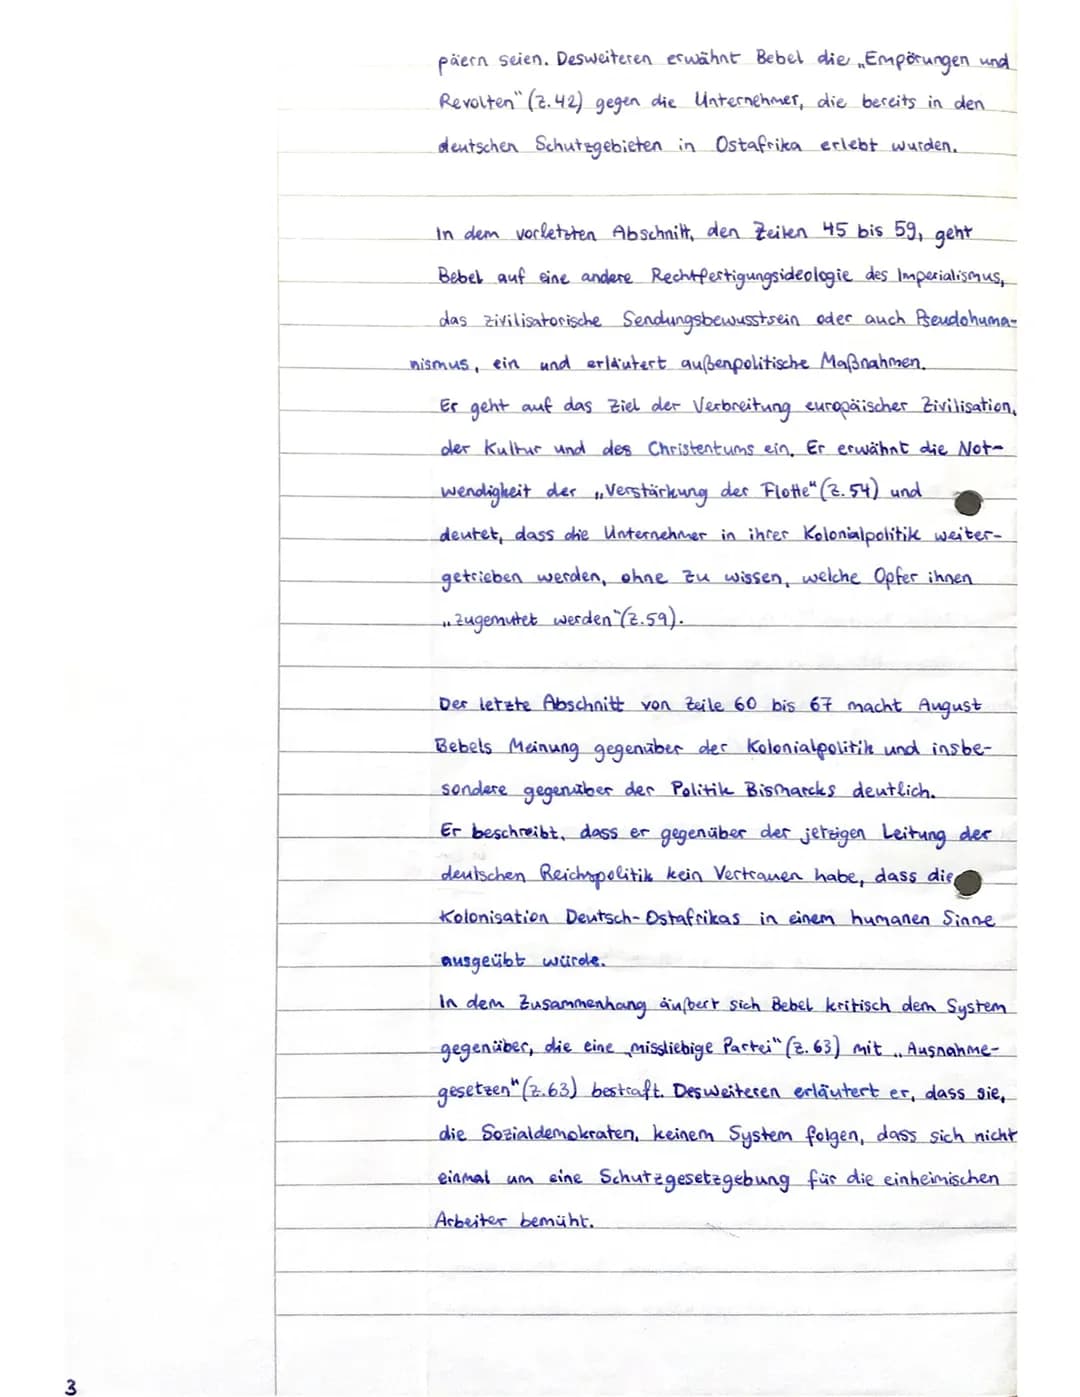 päern seien. Desweiteren erwähnt Bebel die „Empörungen und
Revolten" (Z.42) gegen die Unternehmer, die bereits in den
deutschen Schutzgebieten in Ostafrika erlebt wurden.
In dem vorletzten Abschnitt, den Zeilen 45 bis 59, geht
Bebel auf eine andere Rechtfertigungsideologie des Imperialismus,
das zivilisatorische Sendungsbewusstsein oder auch Pseudohuma-
nismus, ein und erläutert außenpolitische Maßnahmen.
Er geht auf das Ziel der Verbreitung europäischer Zivilisation,
der Kultur und des Christentums ein. Er erwähnt die Not-
wendigkeit der „Verstärkung der Flotte" (Z.54) und
deutet, dass die Unternehmer in ihrer Kolonialpolitik weiter-
getrieben werden, ohne zu wissen, welche Opfer ihnen
„zugemutet werden" (Z.59).
Der letzte Abschnitt von Zeile 60 bis 67 macht August
Bebels Meinung gegenüber der Kolonialpolitik und insbe-
sondere gegenüber der Politik Bismarcks deutlich.
Er beschreibt, dass er gegenüber der jetzigen Leitung der
deutschen Reichspolitik kein Vertrauen habe, dass die
Kolonisation Deutsch-Ostafrikas in einem humanen Sinne
ausgeübt würde.
In dem Zusammenhang äußert sich Bebel kritisch dem System
gegenüber, die eine „missliebige Partei" (Z.63) mit „Ausnahme-
gesetzen" (Z.63) bestraft. Desweiteren erläutert er, dass sie,
die Sozialdemokraten, keinem System folgen, dass sich nicht
einmal um eine Schutzgesetzgebung für die einheimischen
Arbeiter bemüht.
3